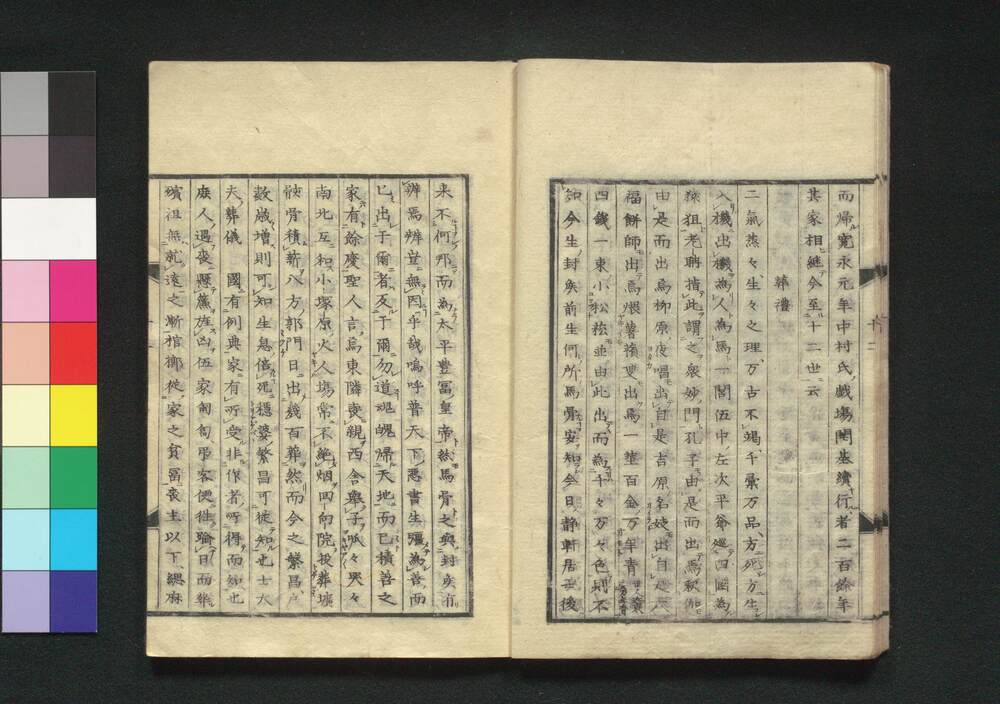 而帰寛永元年中村氏戯場開基續行者二百餘年
其家相継今至十二世云
葬禮
二氣蒸々生々之理万古不竭千彙万品方死方生
入機出機為人為馬一閤伍中左次平爺巡四國為
猿狙老聃指此謂之衆妙門孔子由是而出為釈伽
由是而出為柳原夜唱出自是吉原名妓出自是
福餅師出焉煨薯積叟出焉一筐百金万年青
四錢一束小松菘並由此出而為千々万々色則不
知今生封矦前生何所馬骨安知今日静軒居士後
来不何那而為太平豊冨皇帝然馬骨之與封矦有
辨焉辨豈無因乎哉嗚呼普天下悪書生彊為善而
已出于爾者反于爾勿道魂魄帰天地而已積善之
家有餘慶聖人言焉東隣喪親西舎舉子哭々
南北互和小塚原火人場常不絶烟四向院投葬壙
快骨積薪八方郭門日出幾百葬然而今之繁昌戸
数歳増則可知生息倍死穏婆繁昌可徒知也士大
夫葬儀 國有例典家有所受非作者所得而知也
庶人遇喪懸簾旌凶伍家匍匐弔客便徃踰日而葬
殯徂無就遠之漸棺槨徒家之貧冨喪主以下緦麻